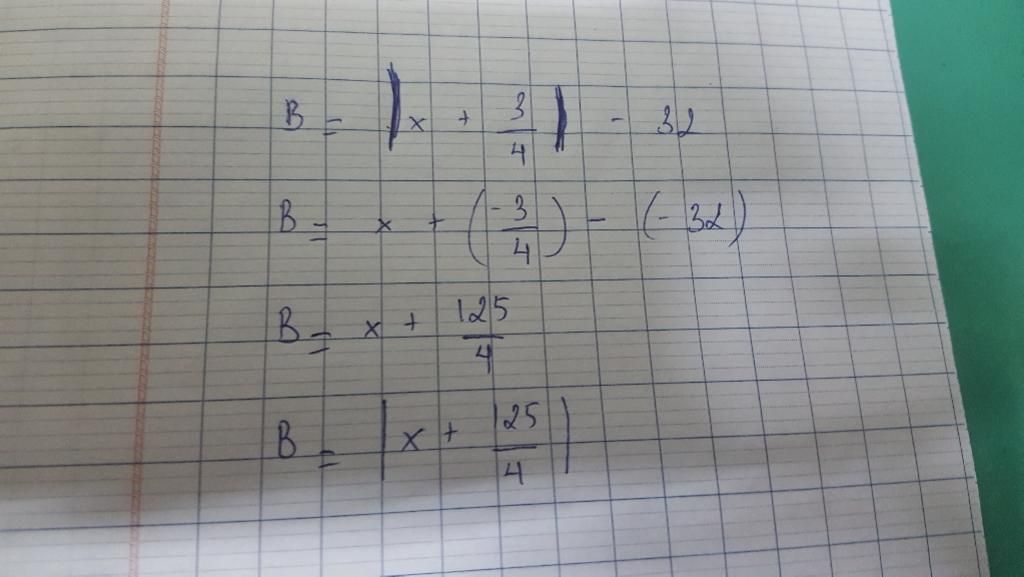 B = |x + 3/4| - 32
B = x + (-3/4) - (-32)
B = x + 125/4
B = |x + 125/4|